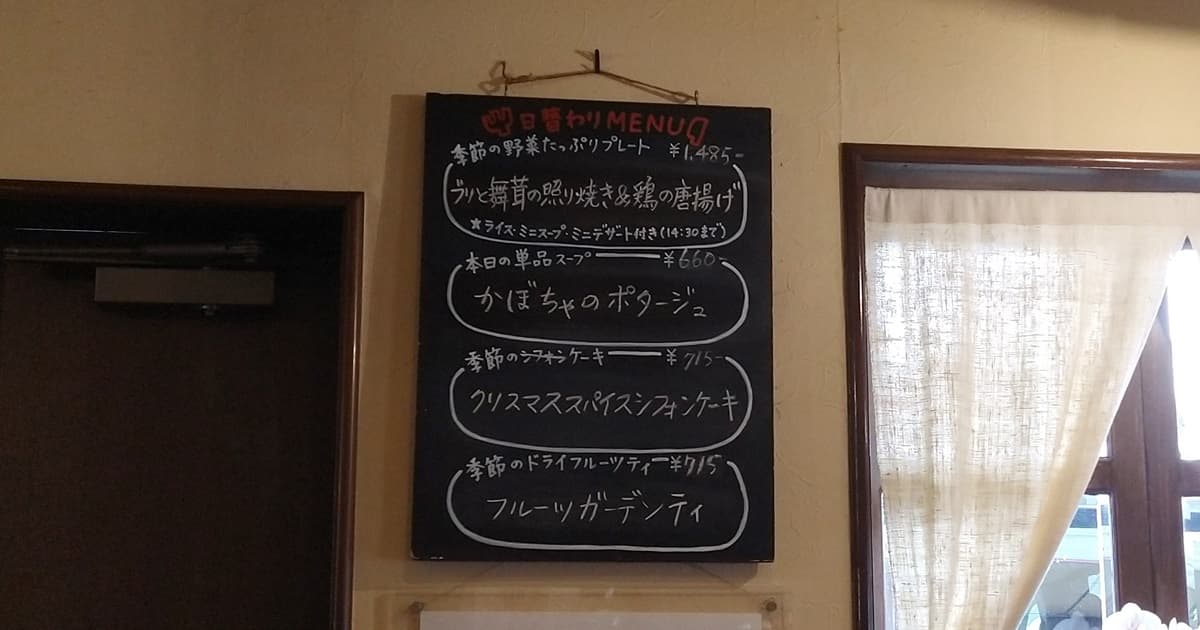 日替わりMENU
季節の野菜たっぷりプレート ¥1,485-
ブリと舞茸の照り焼き&鶏の唐揚げ
★ライス・ミニスープ・ミニデザート付き(14:30まで)
本日の単品スープ ¥660-
かぼちゃのポタージュ
季節のシフォンケーキ ¥715-
クリスマススパイスシフォンケーキ
季節のドライフルーツティー ¥715
フルーツガーデンティ